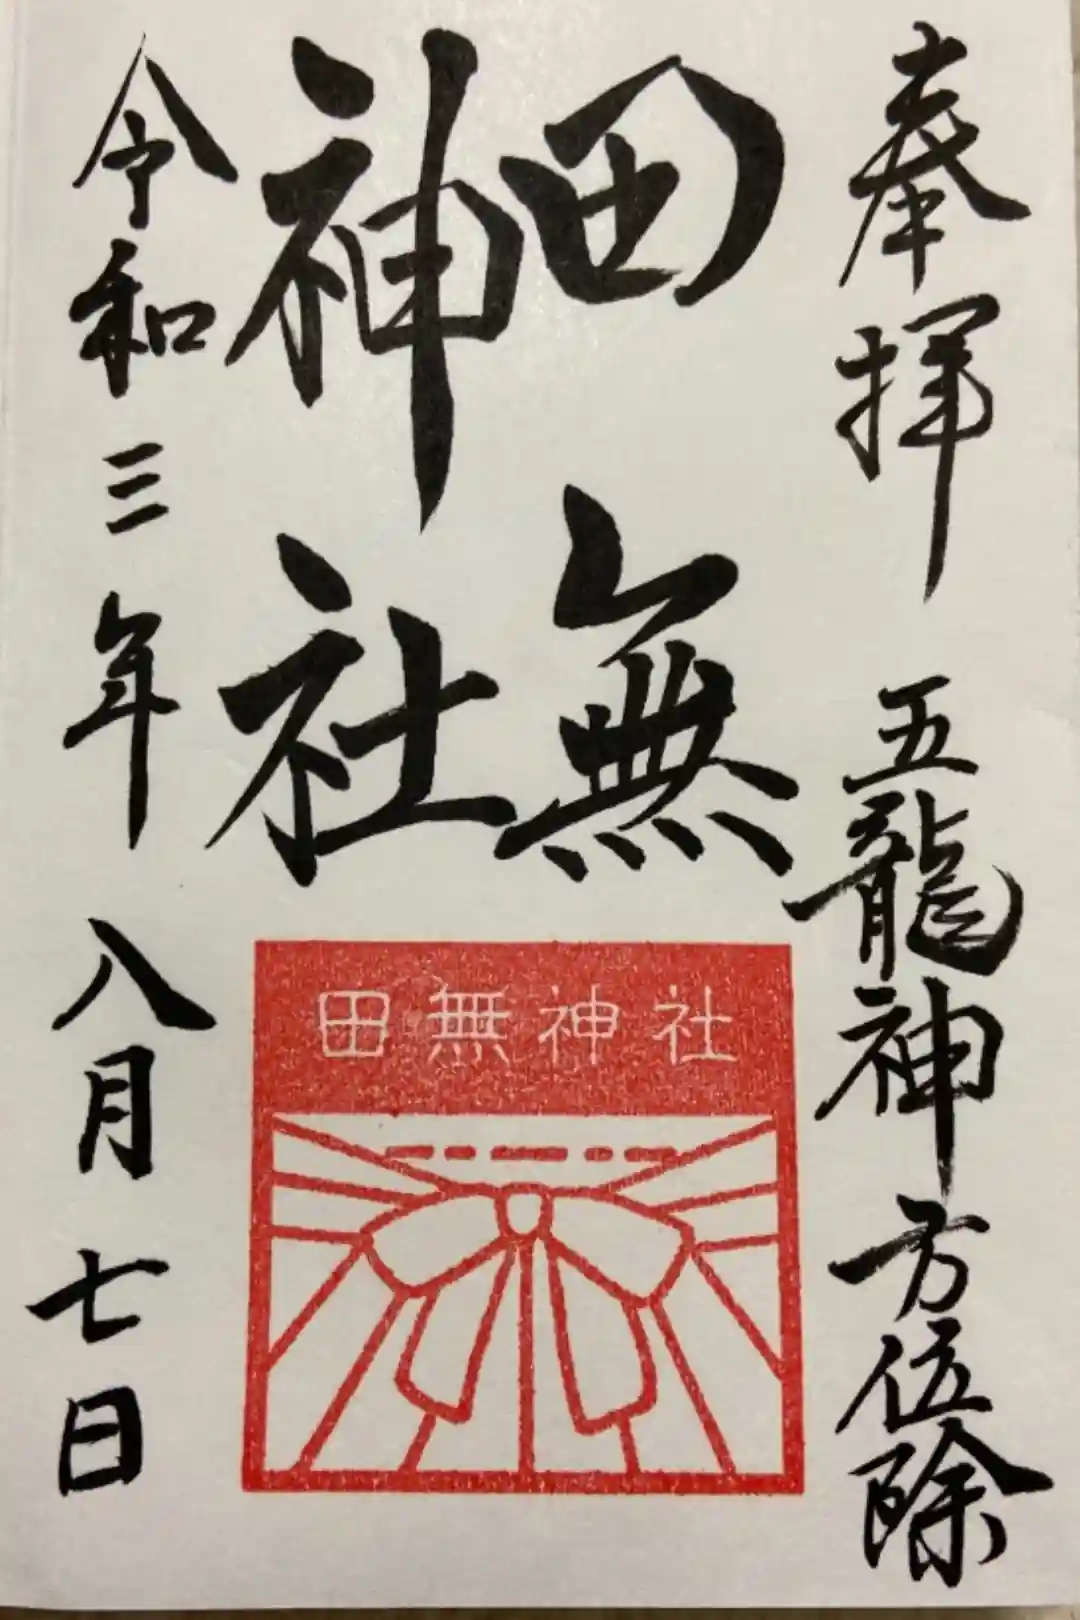 奉拝 五龍神方位除
田無
神社
令和三年八月七日
田無神社